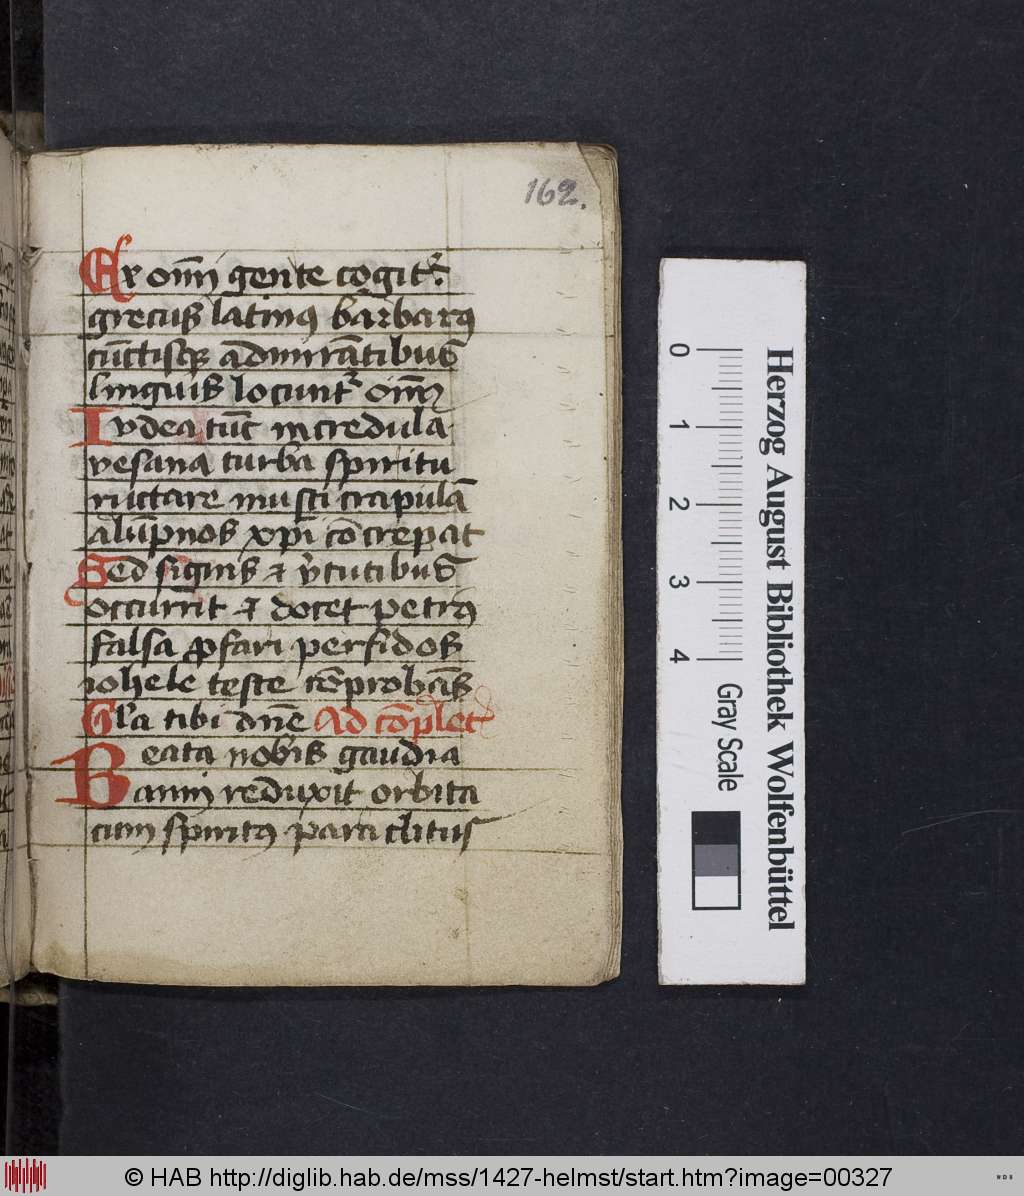 162.
Ex om̄i gente cogit᷑
grecus latinꝰ barbarꝰ
cūctisqꝫ admirātibus
linguis locunt᷑ om̄i
Iudea tūc incredula
vesana turba spiritu
ructare musti crapulā
alūpnos xp̄i cōcrepat
Sed signis et v̓tutibus
occurrit et docet petrꝰ
falsa ꝓfari perfidos
iohele teste cōprobās
Gl̓a tibi dn̄e Ad cōplet
Beata nob̓is gaudia
anni reduxit orbita
cum spiritꝰ paraclitus
Herzog August Bibliothek Wolfenbüttel
0 1 2 3 4 Gray Scale
© HAB http://diglib.hab.de/mss/1427-helmst/start.htm?image=00327